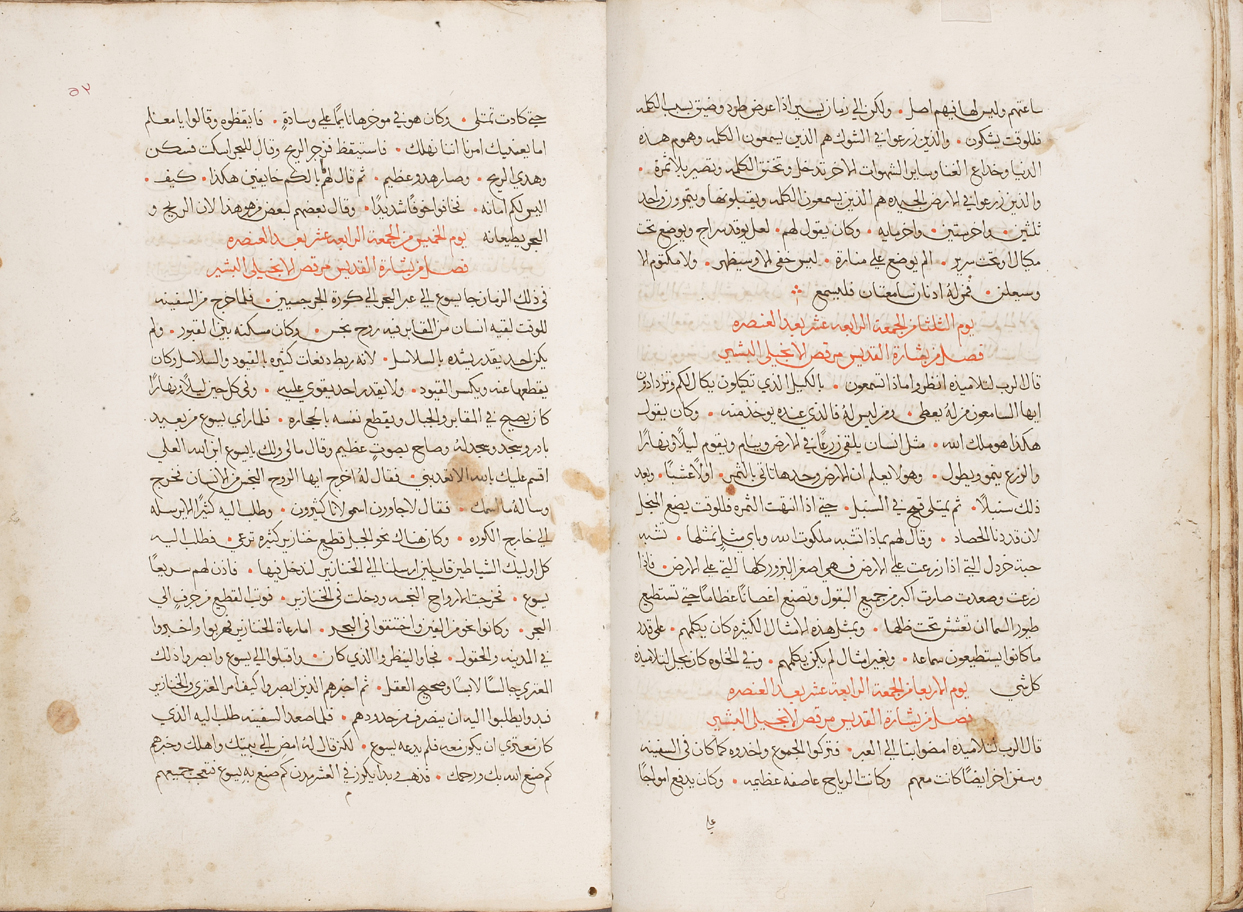 ساعتهم وليس لهم فيهم اصل • ولكن الى زمان يسير اذا عرض طرد وضيق بسبب الكلمه
فللوقت يشكون • والذين زرعوا في الشوك هم الذين يسمعون الكلمه وهموم هذه
الدنيا وخداع الغنا وساير الشهوات الاخر تدخل وتخنق الكلمه وتصير بلا ثمرة •
والذين زرعوا في الارض الجيده هم الذين يسمعون الكلمه ويقبلونها ويثمرون واحد
ثلثين • واخر ستين • واخر مايه • وكان يقول لهم • لعل يوقد سراج ويوضع تحت
مكيال او تحت سرير • الم يوضع على مناره • ليس خفي الا وسيظهر • ولا مكتوم الا
وسيعلن • فمن له اذنان سامعتان فليسمع
يوم الثلثا من الجمعة الرابعة عشر بعد العنصره
فصل من بشارة القديس مرقص الانجيلي البشير
قال الرب لتلاميذه انظروا ماذا تسمعون • بالكيل الذي تكيلون يكال لكم وتزدادون
ايها السامعون من له يعطى • ومن ليس له فالذي عنده يوخذ منه • وكان يقول
هكذا هو ملك الله • مثل انسان يلقي زرعًا في الارض وينام ويقوم ليلًا ونهارًا
والزرع ينمو ويطول • وهو لا يعلم ان الارض وحدها تاتي بالثمر • اولًا عشبًا • وبعد
ذلك سنبلًا • ثم يمتلي قمح في السنبل • حتى اذا انتهت الثمره فللوقت يضع المنجل
لان قد دنا الحصاد • وقال لهم بماذا نشبه ملكوت الله وباي مثلٍ نمثلها • تشبه
حبة خردل التي اذا زرعت على الارض فهي اصغر البزور كلها التي على الارض • فاذا
زرعت وصعدت صارت اكبر من جميع البقول وتصنع اغصانًا عظامًا حتى تستطيع
طيور السما ان تعشش تحت ظلها • وبمثل هذه الامثال الكثيره كان يكلمهم • على قدر
ما كانوا يستطيعون سماعه • وبغير امثال لم يكن يكلمهم • وفي الخلوه كان يحل لتلاميذه
كل شي يوم الاربعا من الجمعة الرابعة عشر بعد العنصره
فصل من بشارة القديس مرقص الانجيلي البشير
قال الرب لتلاميذه امضوا بنا الى العبر • فتركوا الجموع واخذوه كما كان في السفينه
وسفن اخر ايضًا كانت معهم وكانت الرياح عاصفه عظيمه • وكان يدفع امواجًا
٥٣
حتى كادت تمتلي • وكان هو في موخرها نايمًا على وسادةٍ • فايقظوه وقالوا يا معلم
اما يعنيك امرنا اننا نهلك • فاستيقظ فزجر الريح وقال للبحر اسكت فسكن
وهدي الريح • وصار هدو عظيم • ثم قال لهم ما بالكم خايفين هكذا • كيف •
اليس لكم امانه • فخافوا خوفًا شديدًا • وقال بعضهم لبعض من هو هذا لان الريح و
البحر يطيعانه يوم الخميس من الجمعة الرابعة عشر بعد العنصره
فصل من بشارة القديس مرقص الانجيلي البشير
في ذلك الزمان جا يسوع الى عبر البحر الى كورة الجرجسيين • فلما خرج من السفينه
للوقت لقيه انسان من المقابر فيه روح نجس • وكان سكنه بين القبور • ولم
يكن احد يقدر يشده بالسلاسل • لانه ربط دفعات كثيره بالقيود والسلاسل وكان
يقطعها عنه ويكسر القيود • ولا يقدر احد يقوى عليه • وفي كل حين ليلًا ونهارًا
كان يصيح في المقابر والجبال ويقطع نفسه بالحجاره • فلما راى يسوع من بعيد
بادر وسجد له وصاح بصوتٍ عظيم وقال ما لي ولك يا يسوع ابن الله العلي
اقسم عليك بالله الا تعذبني • فقال له اخرج ايها الروح النجس من الانسان فخرج
وساله ما اسمك • فقال لاجاون اسمي لاننا كثيرون • وطلب اليه كثيرًا الا يرسله
الى خارج الكوره • وكان هناك نحو الجبل قطيع خنازير كثيره ترعى • فطلب اليه
كل اوليك الشياطين قايلين ارسلنا الى الخنازير لندخل فيها • فاذن لهم سريعًا
يسوع • فخرجت الارواح النجسه ودخلت في الخنازير • فوثب القطيع من جرفٍ الى
البحر • وكانوا نحو من الفين واختنقوا في البحر • اما رعاة الخنازير فهربوا واخبروا
في المدينه والحقول • فجاوا لينظروا الذي كان واقبلوا الى يسوع وابصروا ذلك
المعترى جالسًا لابسًا وصحيح العقل • ثم اخبرهم الذين ابصروا كيف امر المعترى والخنازير
فبدوا يطلبوا اليه ان ينصرف من حدودهم • فلما صعد السفينه طلب اليه الذي
كان معترى ان يكون معه فلم يدعه يسوع • لكن قال له امض الى بيتك واهلك وخبرهم
كم صنع الله بك ورحمك • فذهب وبدا يكرز في العشر مدن كم صنع به يسوع فتعجب جميعهم